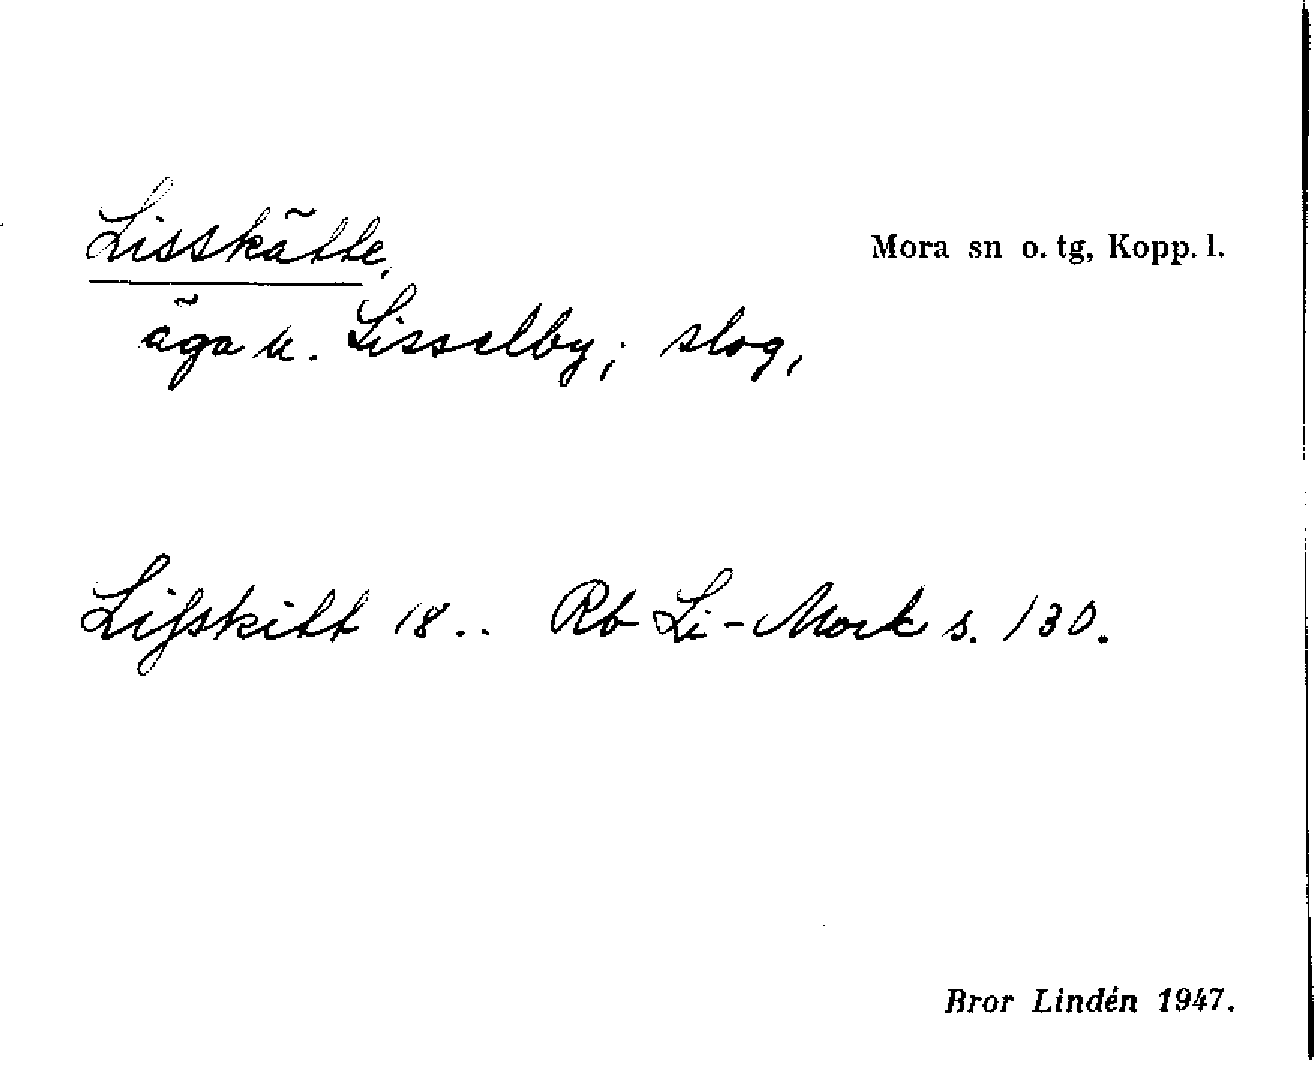 Lisskätte,
Mora sn o. tg, Kopp. l.
äga u. Lisselby; slog,
Lisskitt 18.. Rb Li-Mork s. 130.
Bror Lindén 1947.